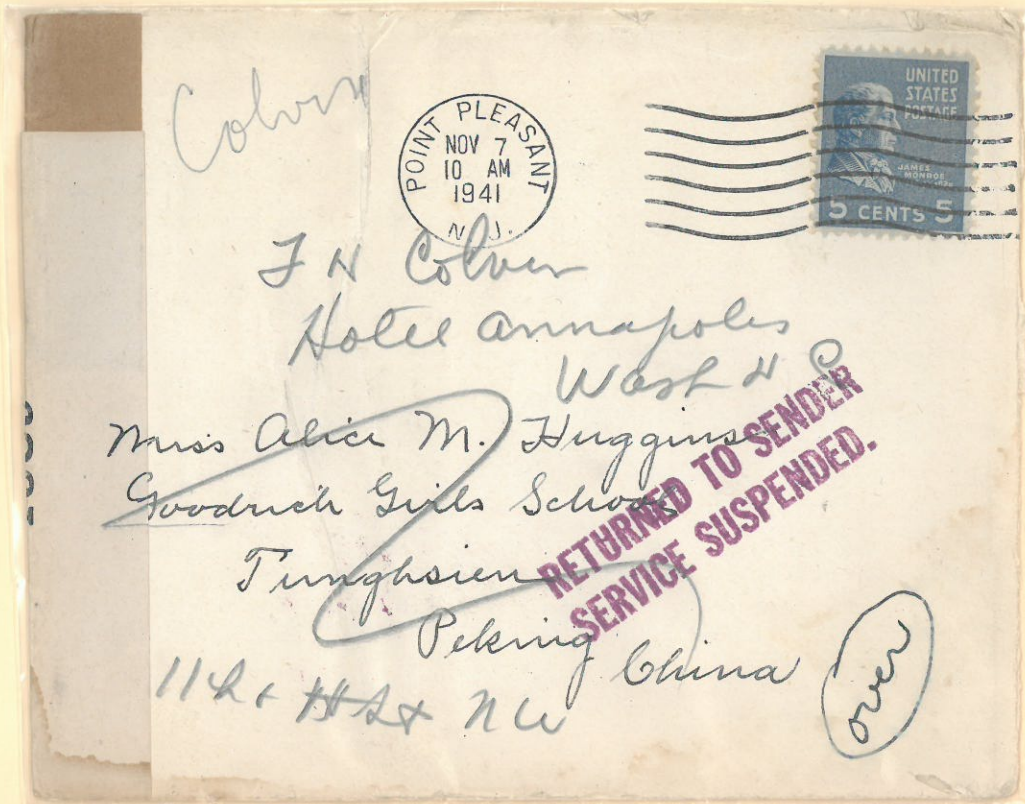 Colver
POINT PLEASANT
NOV 7
10 AM
1941
N. J.
UNITED
STATES
POSTAGE
JAMES
MONROE
5 CENTS 5
F H Colver
Hotel Annapolis
Wash D C
Miss Alice M. Huggins
Goodrich Girls School
Tunghsien
Peking
China
RETURNED TO SENDER
SERVICE SUSPENDED.
11th & H St N W
over